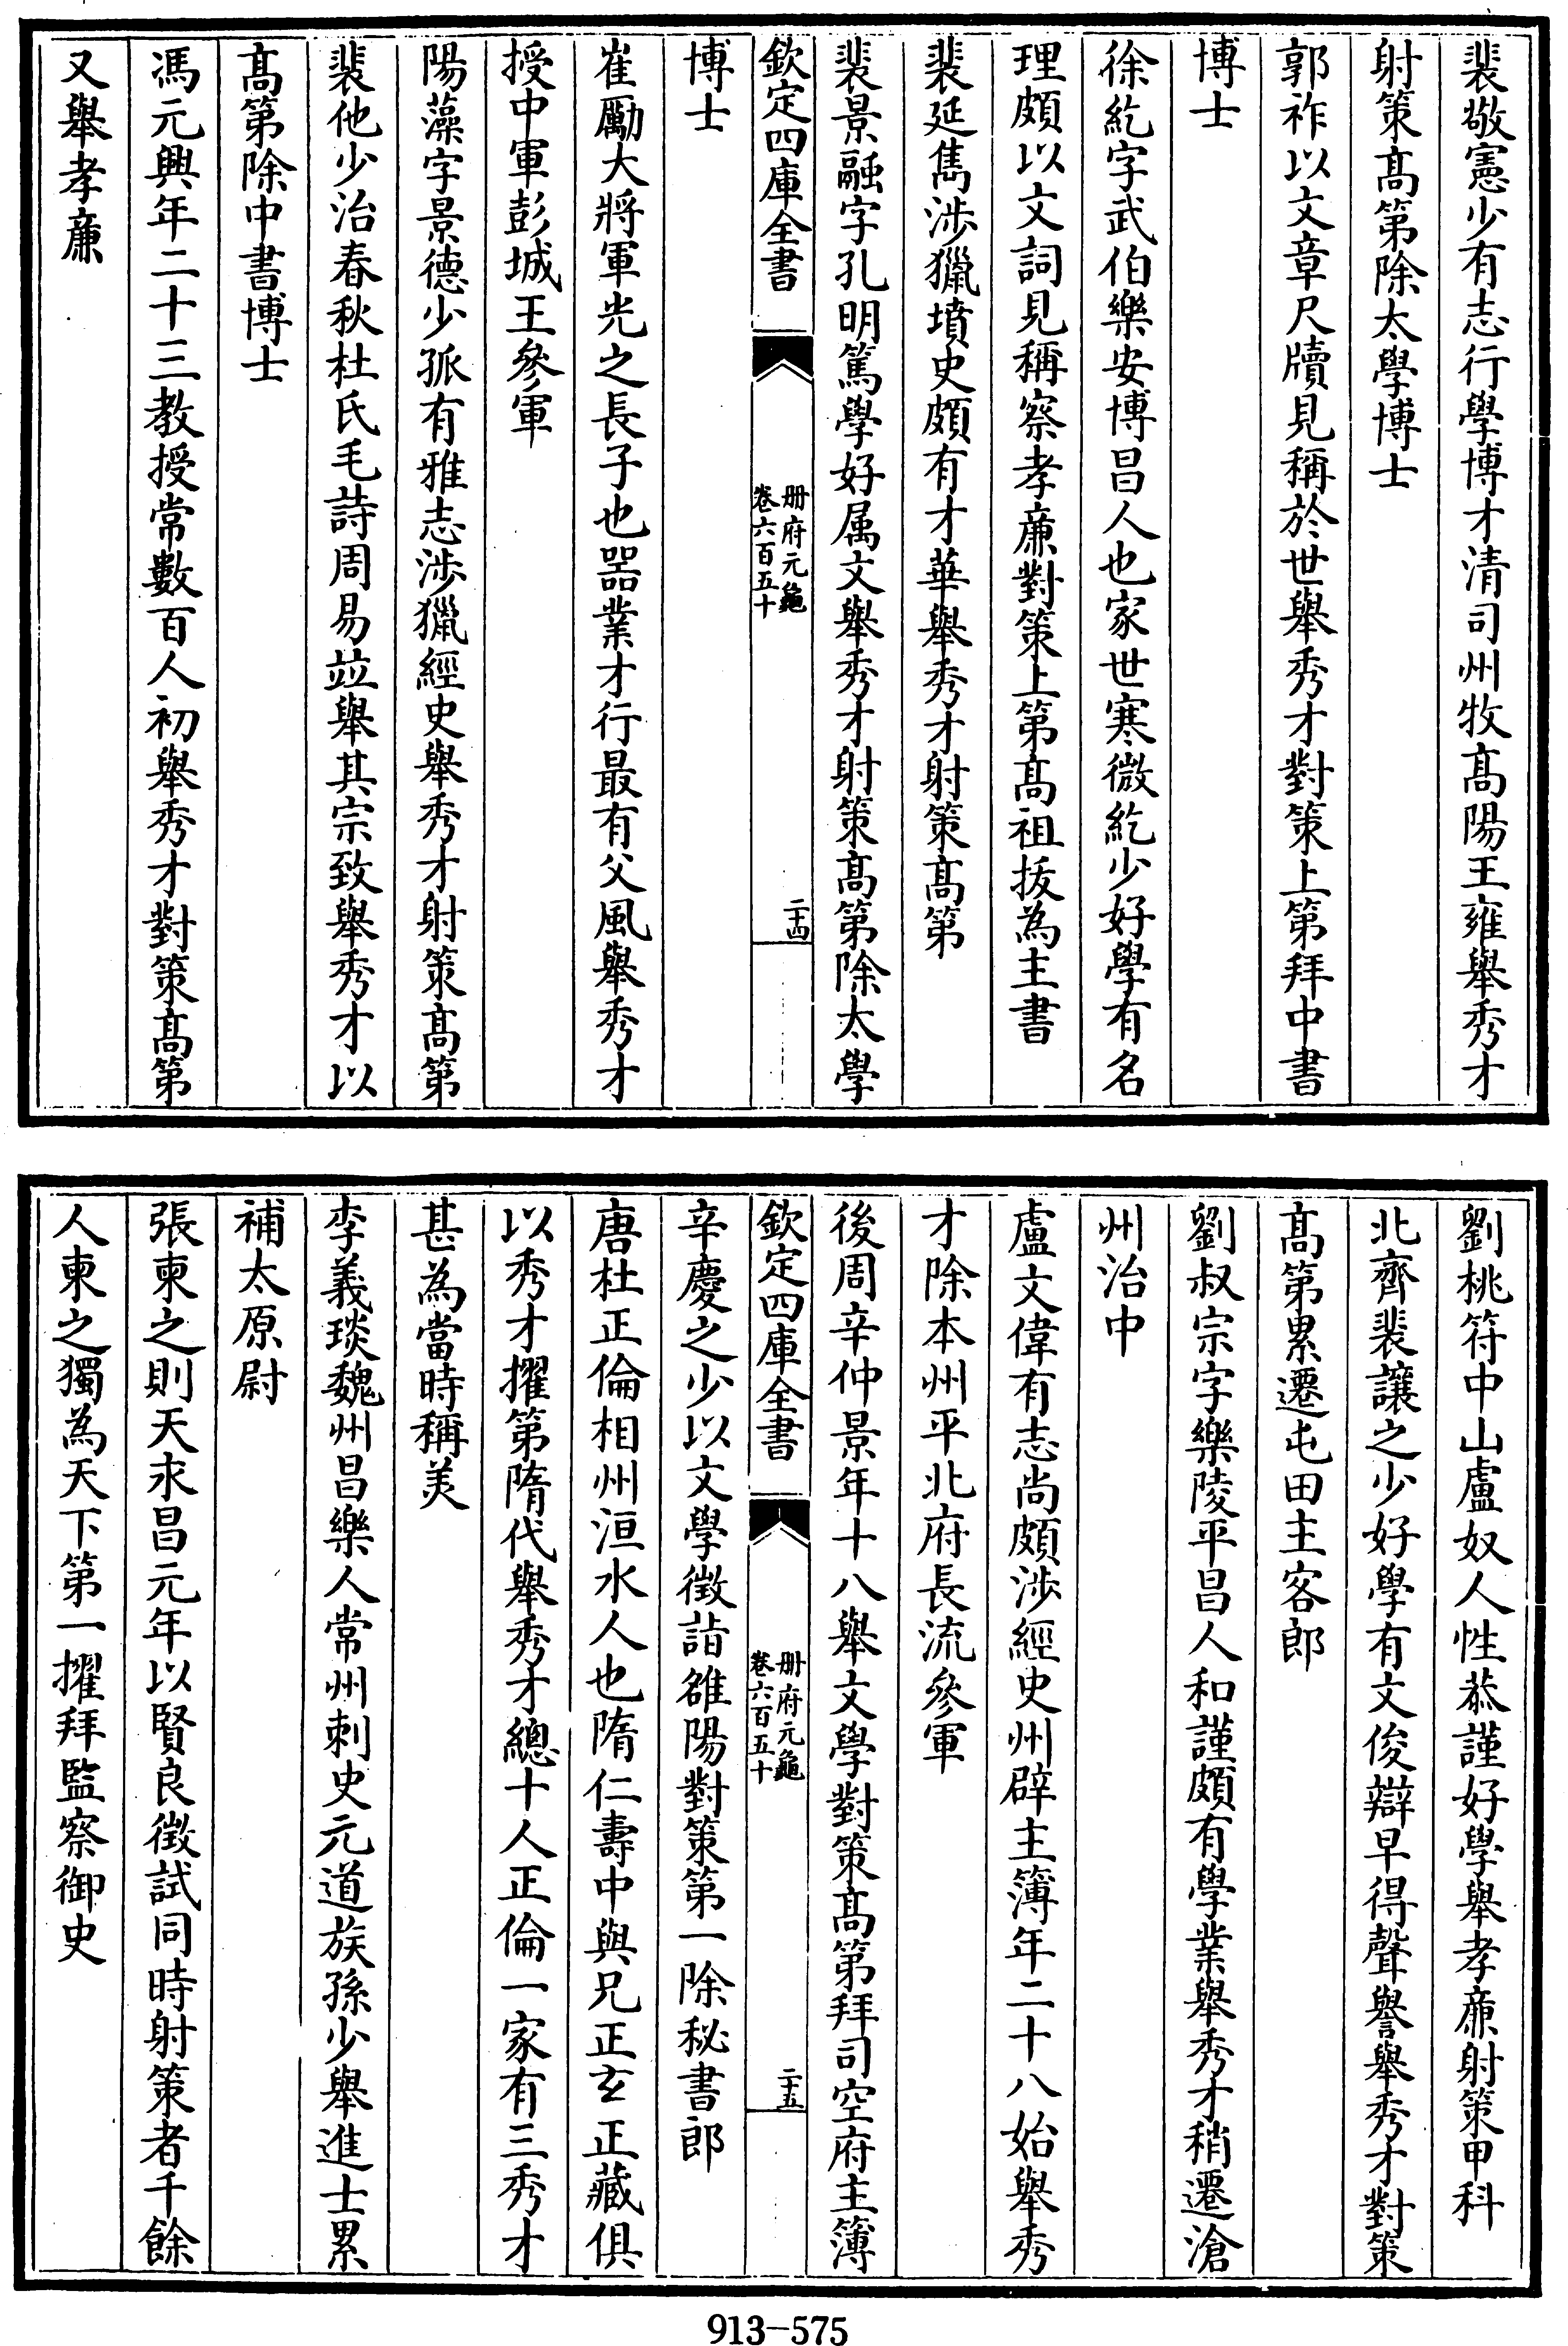 裴敬憲少有志行學博才清司州牧髙陽王雍舉秀才
射策髙第除太學博士
郭祚以文章尺牘見稱於世舉秀才對策上第拜中書
博士
徐紇字武伯樂安博昌人也家世寒微紇少好學有名
理頗以文詞見稱察孝亷對策上第髙祖拔為主書
裴延雋渉獵墳史頗有才華舉秀才射策髙第
裴景融字孔明篤學好属文舉秀才射策髙第除太學
欽定四庫全書
册府元龜
卷六百五十
二十四
博士
崔勵大將軍光之長子也器業才行最有父風舉秀才
授中軍彭城王參軍
陽藻字景德少孤有雅志涉獵經史舉秀才射策髙第
裴他少治春秋杜氏毛詩周易並舉其宗致舉秀才以
髙第除中書博士
馮元興年二十三教授常數百人初舉秀才對策髙第
又舉孝亷
劉桃符中山盧奴人性恭謹好學舉孝亷射策甲科
北齊裴讓之少好學有文俊辯早得聲譽舉秀才對策
髙第累遷屯田主客郎
劉叔宗字樂陵平昌人和謹頗有學業舉秀才稍遷滄
州治中
盧文偉有志尚頗涉經史州辟主簿年二十八始舉秀
才除本州平北府長流參軍
後周辛仲景年十八舉文學對策髙第拜司空府主簿
欽定四庫全書
册府元龜
卷六百五十
二十五
辛慶之少以文學徴詣雒陽對策第一除秘書郎
唐杜正倫相州洹水人也隋仁壽中與兄正玄正藏俱
以秀才擢第隋代舉秀才總十人正倫一家有三秀才
甚為當時稱美
李義琰魏州昌樂人常州刺史元道族孫少舉進士累
補太原尉
張柬之則天永昌元年以賢良徵試同時射策者千餘
人柬之獨為天下第一擢拜監察御史
913-575